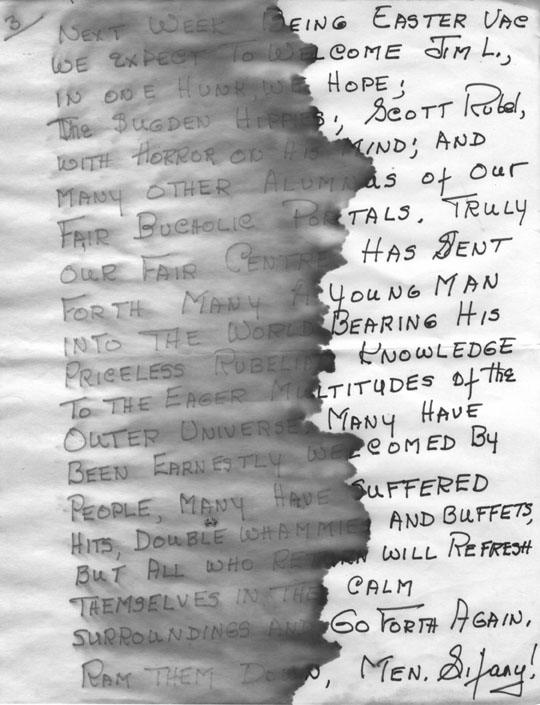 3
NEXT WEEK BEING EASTER VAC
WE EXPECT TO WELCOME JIM L.,
IN ONE HUNK, WE HOPE;
The BUGDEN HIPPIES; SCOTT RUBEL,
WITH HORROR ON HIS MIND; AND
MANY OTHER ALUMNUS of OUR
FAIR BUCHOLIC PORTALS. TRULY
OUR FAIR CENTRE HAS SENT
FORTH MANY A YOUNG MAN
INTO THE WORLD BEARING HIS
PRICELESS RUBELIAN KNOWLEDGE
TO THE EAGER MULTITUDES of the
OUTER UNIVERSE. MANY HAVE
BEEN EARNESTLY WELCOMED BY
PEOPLE, MANY HAVE SUFFERED
HITS, DOUBLE WHAMMIES AND BUFFETS,
BUT ALL WHO RETURN WILL REFRESH
THEMSELVES IN THE CALM
SURROUNDINGS AND GO FORTH AGAIN.
RAM THEM DOWN, MEN.